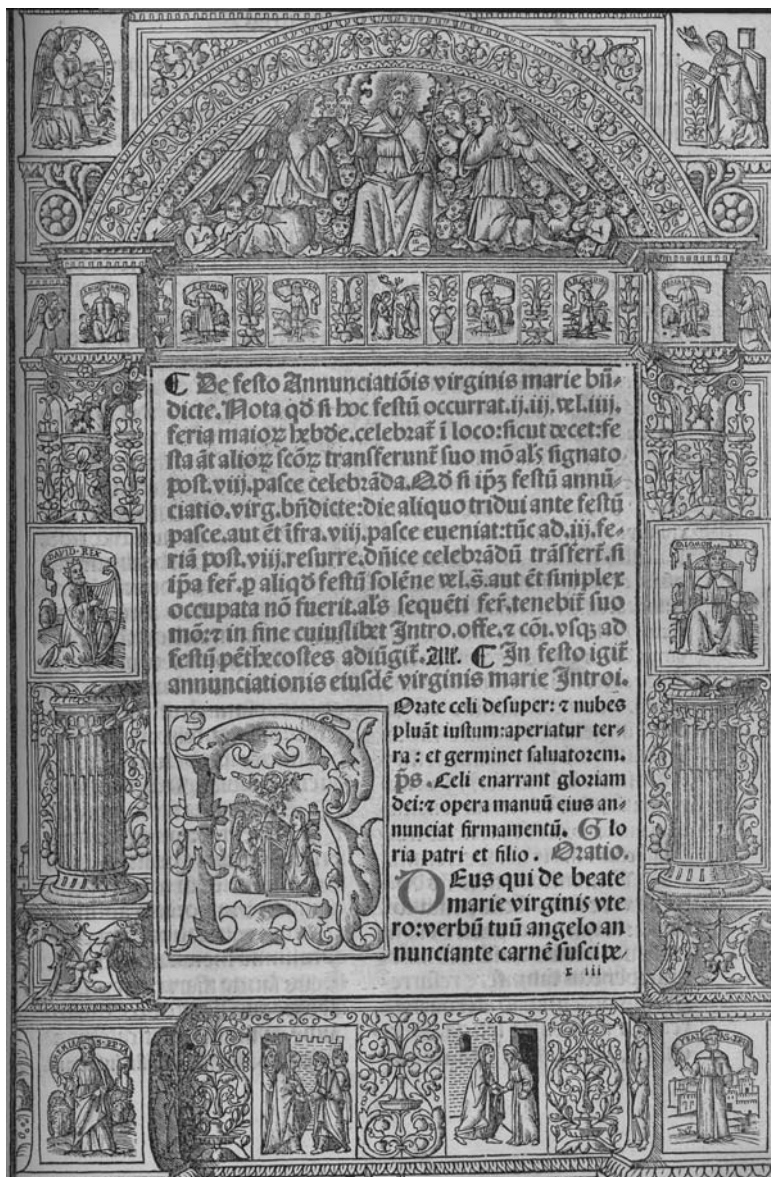 DAVID·REX
SALAMON·REX
¶ De festo Annunciatiõis virginis marie bñ-
dicte. Nota qđ si hoc festũ occurrat.ij.iij.vel.iiij.
feria maioꝝ hebde.celebrat̃ ĩ loco:sicut decet:fe-
sta aũt alioꝝ scõꝝ transferunt̃ suo mõ als̃ signato
post.viij.pasce celebrãda.Qđ si ip̃ȝ festũ annũ-
ciatio.virg.bñdicte:die aliquo tridui ante festũ
pasce.aut et̃ ĩfra.viij.pasce eueniat:tũc ad.iij.fe-
riã post.viij.resurre.dñice celebrãdũ trãsfert̃.si
ip̃a fer̃.ꝑ aliqđ festũ solẽne vel.s̃.aut et̃ simplex
occupata nõ fuerit.als̃ sequẽti fer̃.tenebit̃ suo
mõ:⁊ in fine cuiuslibet Intro.offe.⁊ cõi.vsqȝ ad
festũ pẽthecostes adiũgit̃.Alle. ¶ In festo igit̃
annunciationis eiusdẽ virginis marie Introi.
ROrate celi desuper: ⁊ nubes
pluãt iustum:aperiatur ter-
ra : et germinet saluatorem.
p̃s.Celi enarrant gloriam
dei:⁊ opera manuũ eius an-
nunciat firmamentũ. Glo
ria patri et filio. Oratio.
DEus qui de beate
marie virginis vte
ro:verbũ tuũ angelo an
nunciante carnẽ suscipe-
r iii